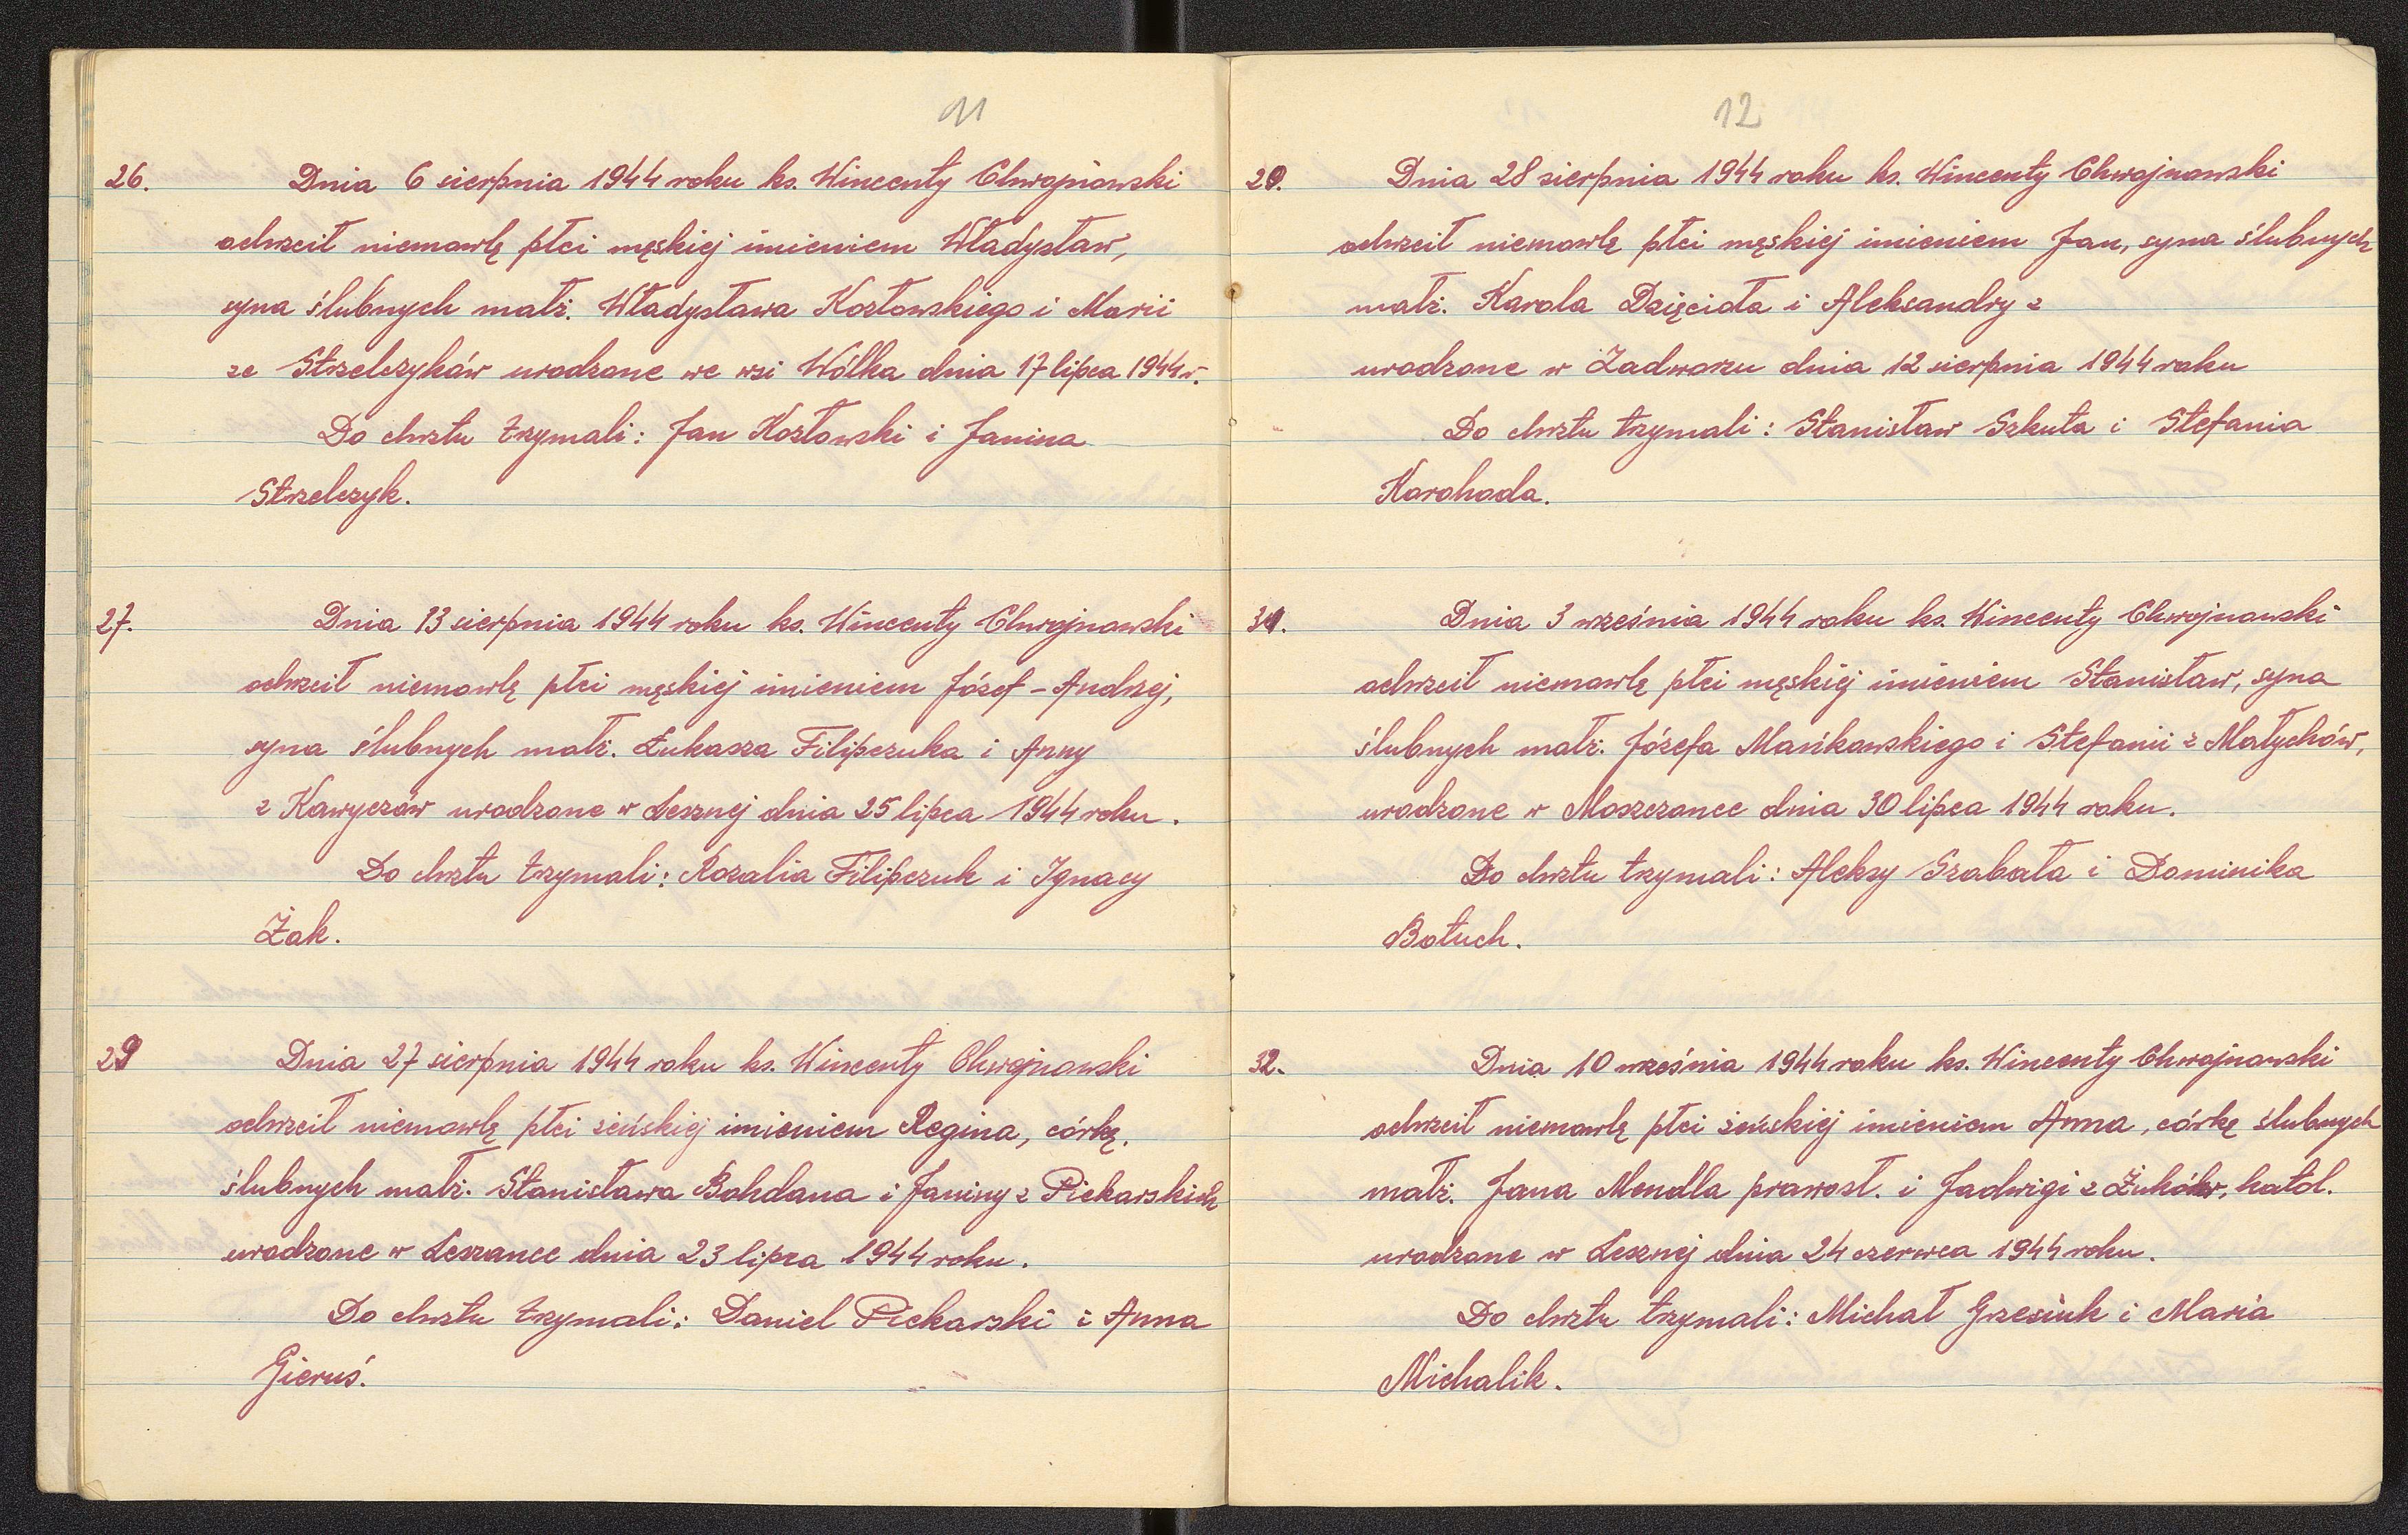 11
26. Dnia 6 sierpnia 1944 roku ks. Wincenty Chwojnowski
ochrzcił niemowlę płci męskiej imieniem Władysław,
syna ślubnych małż. Władysława Kozłowskiego i Marii
ze Strzelczyków urodzone we wsi Wólka dnia 17 lipca 1944 r.
Do chrztu trzymali: Jan Kozłowski i Janina
Strzelczyk.
27. Dnia 13 sierpnia 1944 roku ks. Wincenty Chwojnowski
ochrzcił niemowlę płci męskiej imieniem Józef-Andrzej,
syna ślubnych małż. Łukasza Filipczuka i Anny
z Kawyczów urodzone w Lesznej dnia 25 lipca 1944 roku.
Do chrztu trzymali: Rozalia Filipczuk i Ignacy
Żak.
29 Dnia 27 sierpnia 1944 roku ks. Wincenty Chwojnowski
ochrzcił niemowlę płci żeńskiej imieniem Regina, córkę,
ślubnych małż. Stanisława Bohdana i Janiny z Piekarskich
urodzone w Leszance dnia 23 lipca 1944 roku.
Do chrztu trzymali: Daniel Piekarski i Anna
Gieruś.
12
Dnia 28 sierpnia 1944 roku ks. Wincenty Chwojnowski
ochrzcił niemowlę płci męskiej imieniem Jan, syna ślubnych
małż. Karola Dzięcioła i Aleksandry z
urodzone w Zadworzu dnia 12 sierpnia 1944 roku
Do chrztu trzymali: Stanisław Szkuta i Stefania
Karohoda.
31. Dnia 3 września 1944 roku ks. Wincenty Chwojnowski
ochrzcił niemowlę płci męskiej imieniem Stanisław, syna
ślubnych małż. Józefa Mańkowskiego i Stefanii z Małychów,
urodzone w Moszczance dnia 30 lipca 1944 roku.
Do chrztu trzymali: Aleksy Szabała i Dominika
Bołuch.
32. Dnia 10 września 1944 roku ks. Wincenty Chwojnowski
ochrzcił niemowlę płci żeńskiej imieniem Anna, córkę ślubnych
małż. Jana Mendla prawosł. i Jadwigi z Żuków, katol.
urodzone w Lesznej dnia 24 czerwca 1944 roku.
Do chrztu trzymali: Michał Grzesiuk i Maria
Michalik.